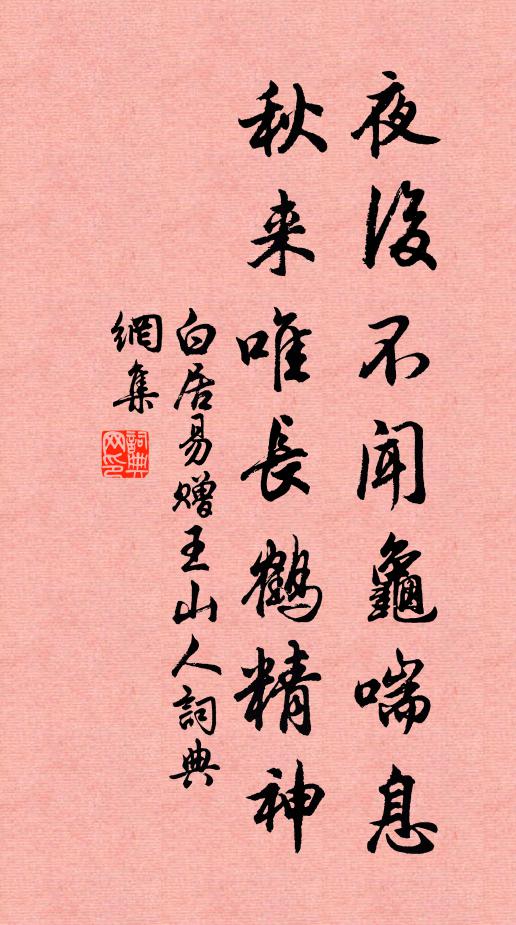 夜後不聞龜喘息
秋来唯長鶴精神
白居易贈王山人詞典
網集
詞典
网印